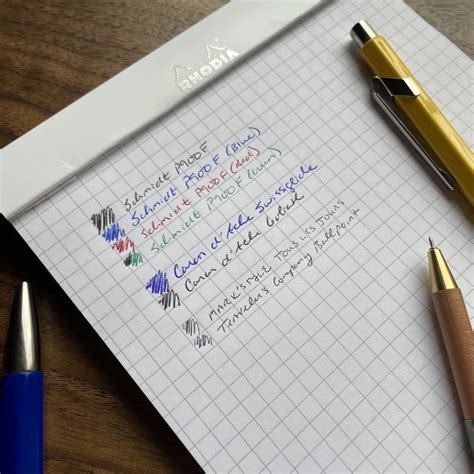 RHODIA
Schmidt P900F
Schmidt P900F (Blue)
Schmidt P900F (Red)
Schmidt P900F (Green)
Caran d'Ache Swissglide
Caran d'Ache Goliath
MARK'STYLE TOUS LES JOURS
Traveler's Company Ballpoint